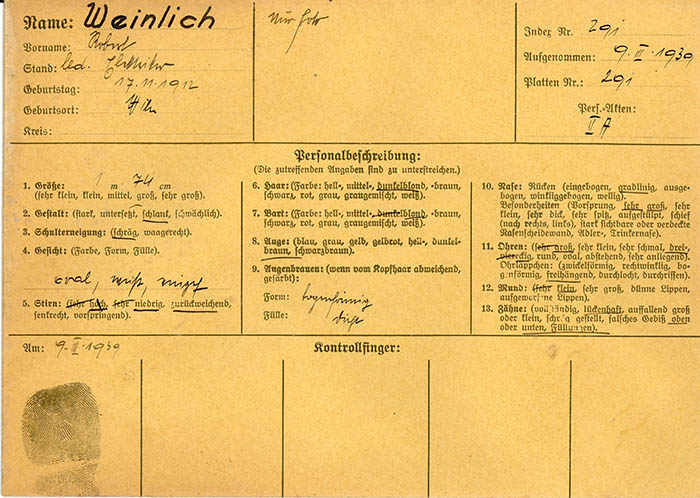 Name: Weinlich
Vorname: Robert
Stand: led. Elektriker
Geburtstag: 17.11.1912
Geburtsort: Wien
Kreis:
Nur Foto
Index Nr. 291
Aufgenommen: 9. III. 1939
Platten Nr.: 291
Pers.-Akten:
II A
Personalbeschreibung:
(Die zutreffenden Angaben sind zu unterstreichen.)
1. Größe: 1 m 74 cm
(sehr klein, klein, mittel, groß, sehr groß).
2. Gestalt: (stark, untersetzt, schlank, schwächlich).
3. Schulterneigung: (schräg, waagerecht).
4. Gesicht: (Farbe, Form, Fülle).
oval,
5. Stirn: (sehr hoch, sehr niedrig, zurückweichend,
senkrecht, vorspringend).
6. Haar: (Farbe: hell-, mittel-, dunkelblond, -braun,
schwarz, rot, grau, graugemischt, weiß).
7. Bart: (Farbe: hell-, mittel-, dunkelblond, -braun,
schwarz, rot, grau, graugemischt, weiß).
8. Auge: (blau, grau, gelb, gelbrot, hell-, dunkel-
braun, schwarzbraun).
9. Augenbrauen: (wenn vom Kopfhaar abweichend,
gefärbt):
Form: bogenförmig
Fülle: dicht
10. Nase: Rücken (eingebogen, gradlinig, ausge-
bogen, winkliggebogen, wellig).
Besonderheiten (Vorsprung, sehr groß, sehr
klein, sehr dick, sehr spitz, aufgestülpt, schief
(nach rechts, links), starf sichtbare oder verdeckte
Nasenscheidewand, Adler-, Trinkernase).
11. Ohren: (sehr groß, sehr klein, sehr schmal, drei-,
viereckig, rund, oval, abstehend, sehr anliegend).
Ohrläppchen: (zwickelförmig, rechtwinklig, bo-
genförmig, freihängend, durchlocht, durchtrennt).
12. Mund: (sehr klein, sehr groß, dünne Lippen,
aufgeworfene Lippen).
13. Zähne: (vollständig, lückenhaft, auffallend groß
oder klein, schräg gestellt, falsches Gebiß oben
oder unten, Füllungen).
Am: 9. III. 1939
Kontrollfinger: